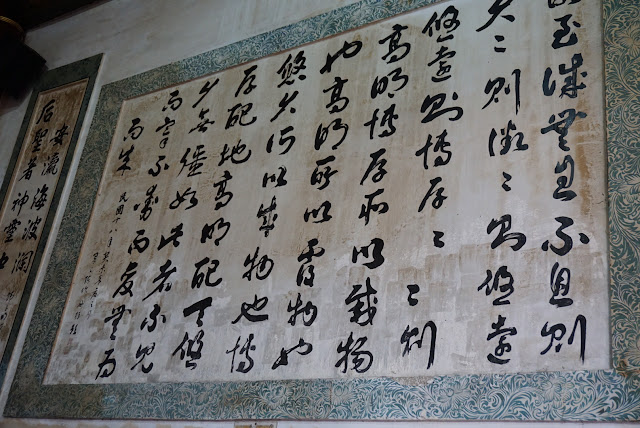 故至誠無息不息則
久〻則徵〻則悠遠
悠遠則博厚〻〻則
高明博厚所以載物
也高明所以覆物也
悠久所以成物也博
厚配地高明配天悠
久無疆如此者不見
而章不動而變無為
而成
民國
安瀾海波闊
后聖者神靈